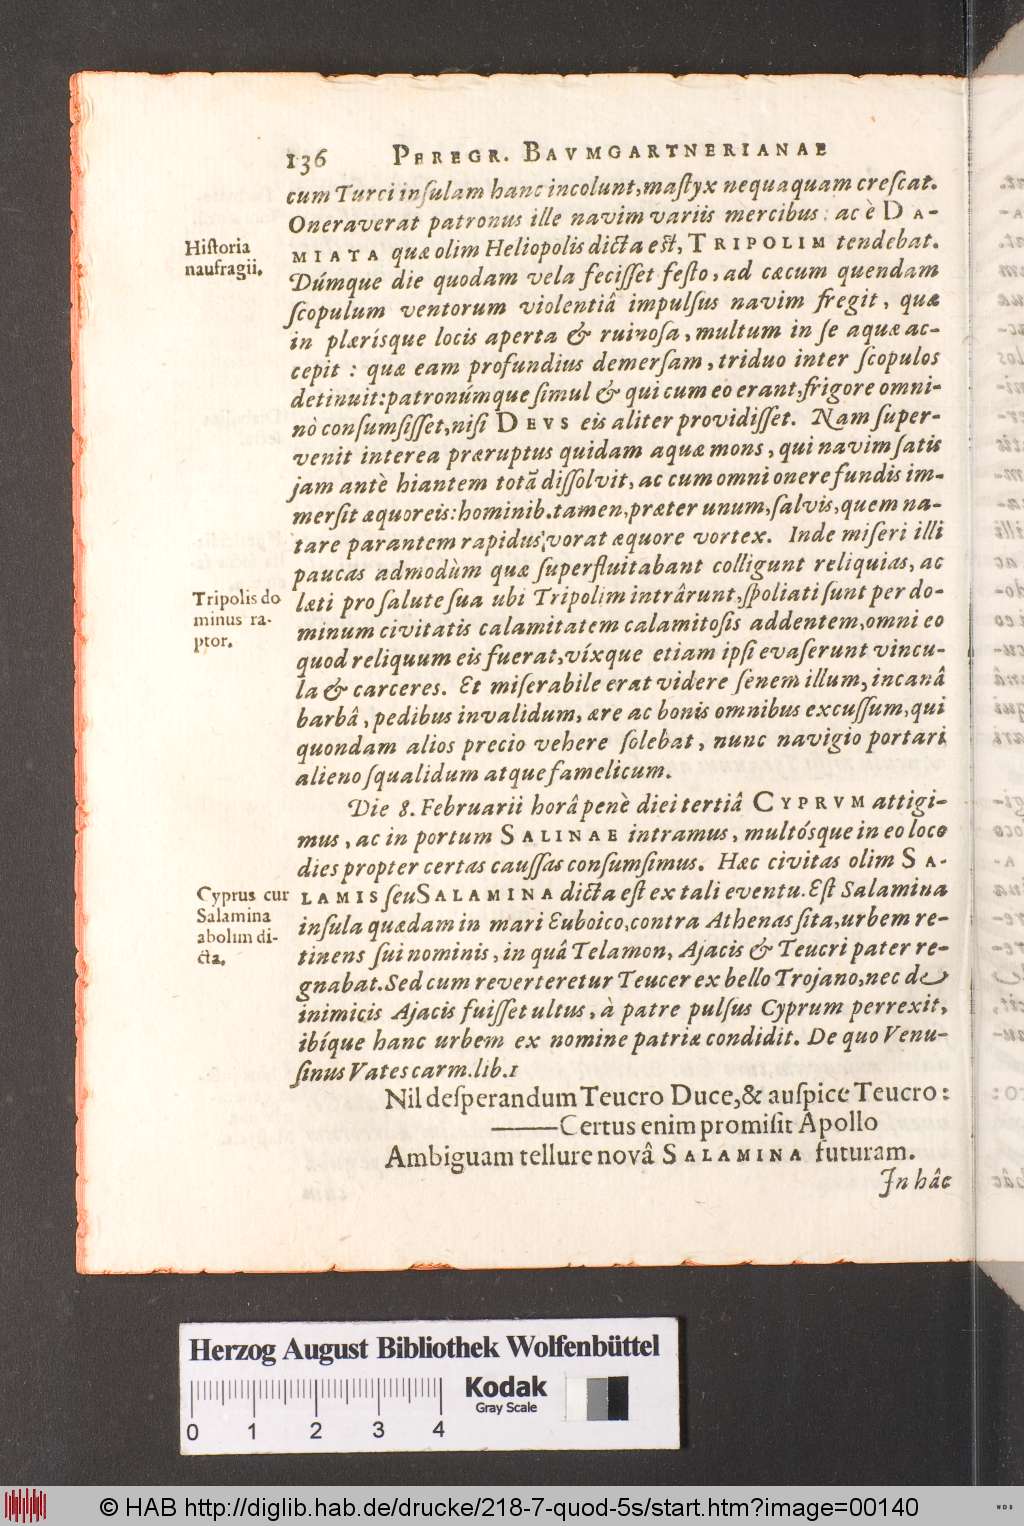 136 PEREGR. BAVMGARTNERIANAE
cum Turci inſulam hanc incolunt, maſtyx nequaquam creſcat.
Oneraverat patronus ille navim variis mercibus: ac è DA-
Hiſtoria
naufragii.
MIATA quæ olim Heliopolis dicta eſt, TRIPOLIM tendebat.
Dúmque die quodam vela feciſſet feſto, ad cæcum quendam
ſcopulum ventorum violentiâ impulſus navim fregit, quæ
in plærisque locis aperta & ruinoſa, multum in ſe aquæ ac-
cepit: quæ eam profundius demerſam, triduo inter ſcopulos
detinuit: patronúmque ſimul & qui cum eo erant, frigore omni-
nò conſumſiſſet, niſi DEVS eis aliter providiſſet. Nam ſuper-
venit interea præruptus quidam aquæ mons, qui navim ſatis
jam antè hiantem totã diſſolvit, ac cum omni onere fundis im-
merſit æquoreis: hominib. tamen, præter unum, ſalvis, quem na-
tare parantem rapidus vorat æquore vortex. Inde miſeri illi
paucas admodùm quæ ſuperfluitabant colligunt reliquias, ac
Tripolis do
minus ra-
ptor.
læti pro ſalute ſua ubi Tripolim intrârunt, ſpoliati ſunt per do-
minum civitatis calamitatem calamitoſis addentem, omni eo
quod reliquum eis fuerat, víxque etiam ipſi evaſerunt vincu-
la & carceres. Et miſerabile erat videre ſenem illum, incanâ
barbâ, pedibus invalidum, ære ac bonis omnibus excuſſum, qui
quondam alios precio vehere ſolebat, nunc navigio portari
alieno ſqualidum atque famelicum.
Die 8. Februarii horâ penè diei tertiâ CYPRVM attigi-
mus, ac in portum SALINAE intramus, multósque in eo loco
dies propter certas cauſſas conſumſimus. Hæc civitas olim SA-
Cyprus cur
Salamina
abolim di-
cta.
LAMIS ſeu SALAMINA dicta eſt ex tali eventu. Eſt Salamina
inſula quædam in mari Euboico, contra Athenas ſita, urbem re-
tinens ſui nominis, in quâ Telamon, Ajacis & Teucri pater re-
gnabat. Sed cum reverteretur Teucer ex bello Trojano, nec de
inimicis Ajacis fuiſſet ultus, à patre pulſus Cyprum perrexit,
ibíque hanc urbem ex nomine patriæ condidit. De quo Venu-
ſinus Vates carm. lib. 1
Nil deſperandum Teucro Duce, & auſpice Teucro:
——Certus enim promiſit Apollo
Ambiguam tellure novâ SALAMINA futuram.
In hâc
Herzog August Bibliothek Wolfenbüttel
Kodak
Gray Scale
0 1 2 3 4
© HAB http://diglib.hab.de/drucke/218-7-quod-5s/start.htm?image=00140